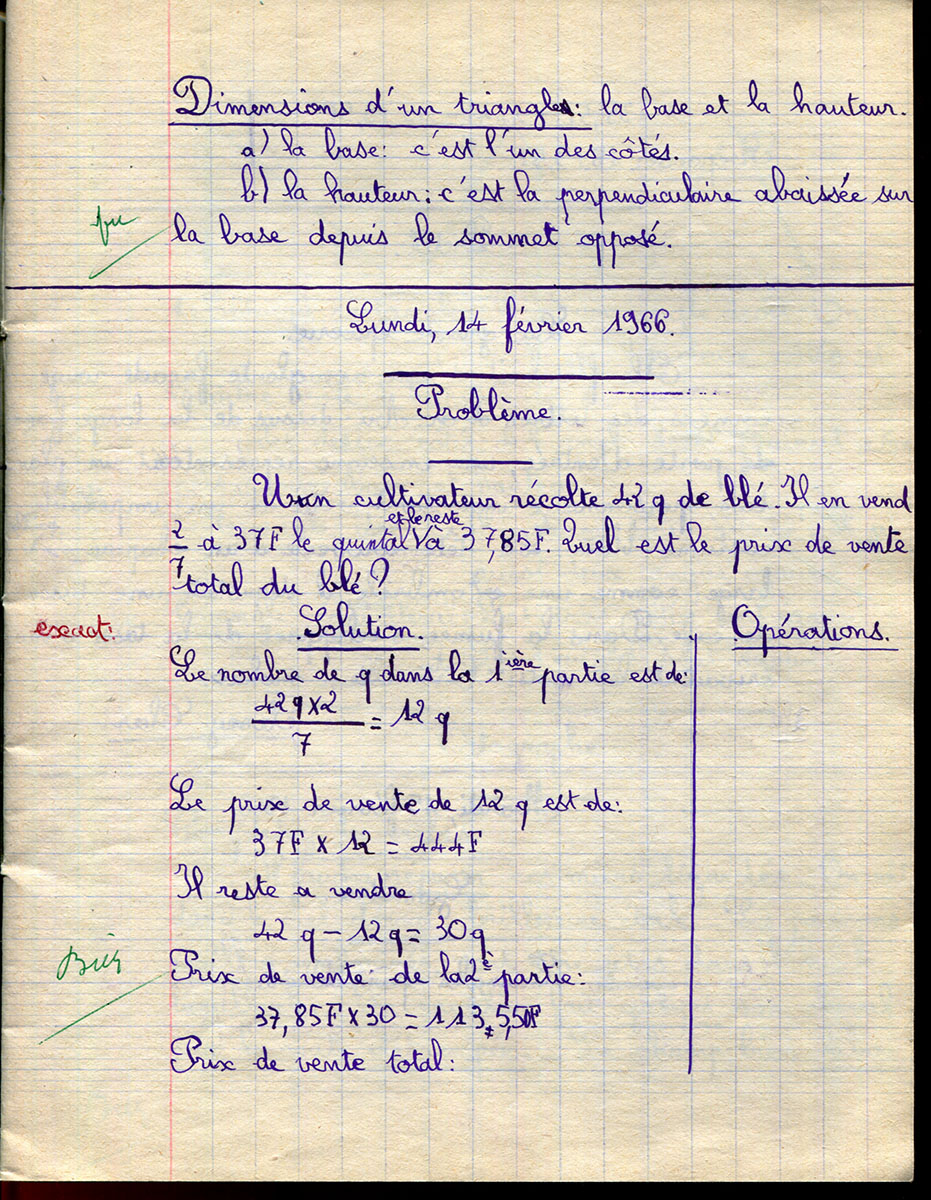 Dimensions d'un triangle: la base et la hauteur.
a) la base: c'est l'un des côtés.
b) la hauteur: c'est la perpendiculaire abaissée sur
vu
la base depuis le sommet opposé.
Lundi, 14 février 1966.
Problème.
Un cultivateur récolte 42 q de blé. Il en vend
2/7 à 37F le quintal et le reste à 37,85F. Quel est le prix de vente
total du blé?
exact:
Solution.
Opérations.
Le nombre de q dans la 1ière partie est de:
42q x 2 / 7 = 12 q
Le prix de vente de 12 q est de:
37F x 12 = 444F
Il reste a vendre
42 q - 12q = 30q
Bien
Prix de vente de la 2è partie:
37,85F x 30 = 1135,50F
Prix de vente total: